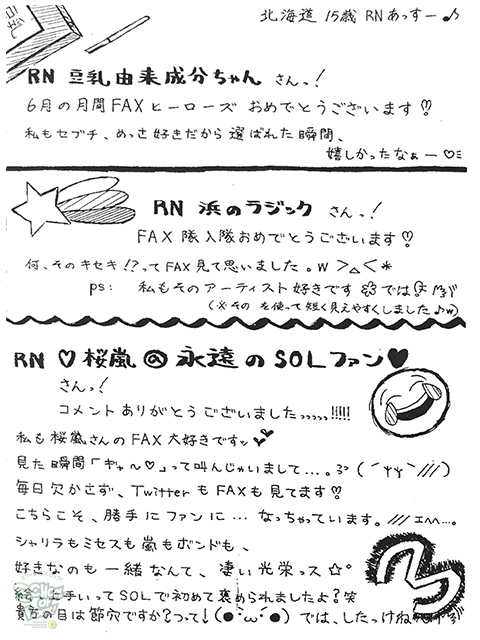 北海道 15歳 RNあっすー♪
RN 豆乳由来成分ちゃん さんっ!
6月の月間FAXヒーローズ おめでとうございます!!
私もセブチ、めっさ好きだから選ばれた瞬間、
嬉しかったなぁー♡ミ
RN 浜のラジック さんっ!
FAX隊入隊おめでとうございます!!
何、そのキセキ!?ってFAX見て思いました。w ＞△＜*
ps: 私もそのアーティスト好きです では
(※その を使って短く見えやすくしました♪w)
RN ♡桜嵐@永遠のSOLファン♥
さんっ!
コメントありがとうございましたっっっっっ!!!!!
私も桜嵐さんのFAX大好きですッ
見た瞬間「ギャ〜♡」って叫んじゃいまして…。
毎日欠かさず、TwitterもFAXも見てます!!
こちらこそ、勝手にファンに…なっちゃています。/// エヘヘ…。
シャリラもミセスも嵐もボンドも、
好きなのも一緒なんて、凄い光栄っス☆°
絵 上手いってSOLで初めて褒められましたよ?笑
貴方の目は節穴ですか?つって↓(●´ω`●)では、したっけね